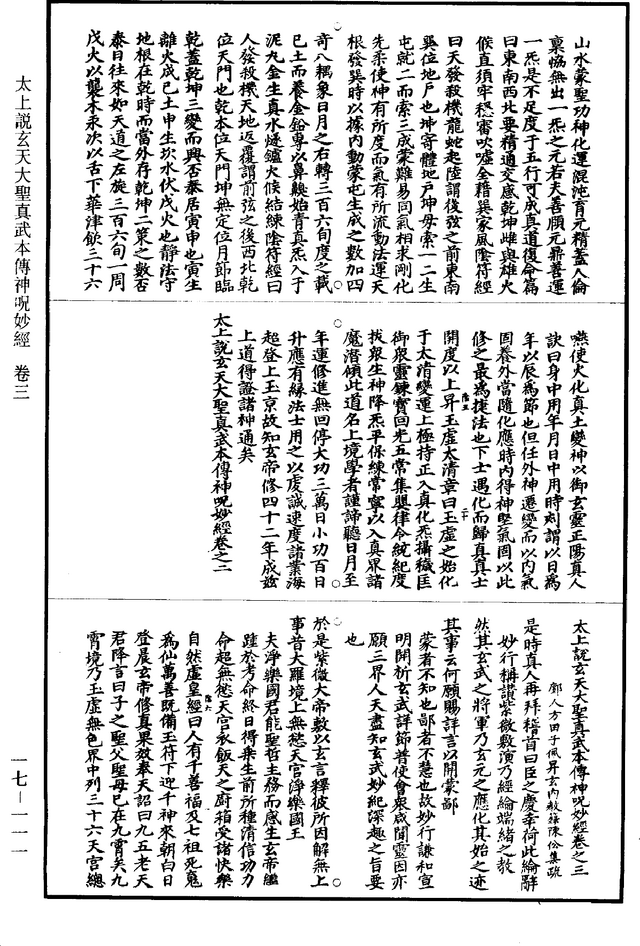 太上說玄天大聖真武本傳神呪妙經 卷三
一七—一一一
山水蒙聖功神化運混沌育元精蓋人倫
稟惱無出一炁之元若夫善願元鼎善運
一炁是不足度于五行可成真道復命篇
曰東南西北要精通交感乾坤雌與雄火
候直須牢穩審吹噓全藉巽家風陰符經
曰天發殺機龍蛇起陸謂後弦之前東南
巽位地戶也坤寄體地戶坤母索一二生
屯就二而索三成蒙難易同氣相求剛化
先柔使神有所度而氣有所流動法運天
根發巽時以據內動蒙屯生成之數加四
奇八耦象日月之右轉三百六旬度之載
已土而養金鉛專以鼻䫙始青真炁入于
泥丸金生真水燧鑪火候結練陰符經曰
人發殺機天地返覆謂前弦之後西北乾
位天門也乾本位天門坤無定位月節臨
乾蓋乾坤三變而興否泰居寅申也寅生
離火成已土申生坎水伏戊火也靜法守
地根在乾時而當外存乾坤二策之數否
泰日往來如天道之左旋三百六旬一周
戊火以襲木汞次以舌下華津飲三十六
嚥使火化真土變神以御玄靈正陽真人
訣曰身中用年月日中用時刻謂以日為
年以辰為節也但任外神遷變而以內氣
固養外當隨化應時內得神堅氣固以此
修之最為捷法也下士遇化而歸真真士
開度以上昇玉虛太清章曰玉虛之始化
于太清變運上極持正入真化炁攝穢匡
御眾靈鍊寶回光五常集覬律令統紀度
拔眾生神降炁平保練常寧以入真界諸
魔潛傾此道名上境學者謹諦聽日月至
年運修進無回停大功三萬日小功百日
升應有緣法士用之以虔誠速度諸業海
超登上玉京故知玄帝修四十二年成玆
上道得證諸神通矣
太上說玄天大聖真武本傳神呪妙經卷之二
太上說玄天大聖真武本傳神呪妙經卷之三
是時真人再拜稽首曰臣之慶幸荷此綸辭
妙行稱讚紫微敷演乃經綸端緒之教
然其玄武之將軍乃玄元之應化其始之迹
其事云何願賜詳言以開蒙鄙
蒙者不知也鄙者不慧也故妙行謙和宣
明開析玄武詳節普使會眾咸聞靈因亦
願三界人天盡知玄武妙紀深趣之旨要
也
於是紫微大帝敷以玄言釋彼所因解無上
事昔大羅境上無愁天宮淨樂國王
夫淨樂國君能聖哲主務而感生玄帝繼
踵於考命終日得乘生前所種清信功力
命超無愁天宮衣飯天之廚箱受諸快樂
自然虛皇經曰人有千善福及七祖死鬼
為仙萬善既備玉符下迎千神來朝白日
登晨玄帝修真果效奉天詔曰九五老天
君降言曰子之聖父聖母已在九霄矣九
霄境乃玉虛無色界中列三十六天宮總